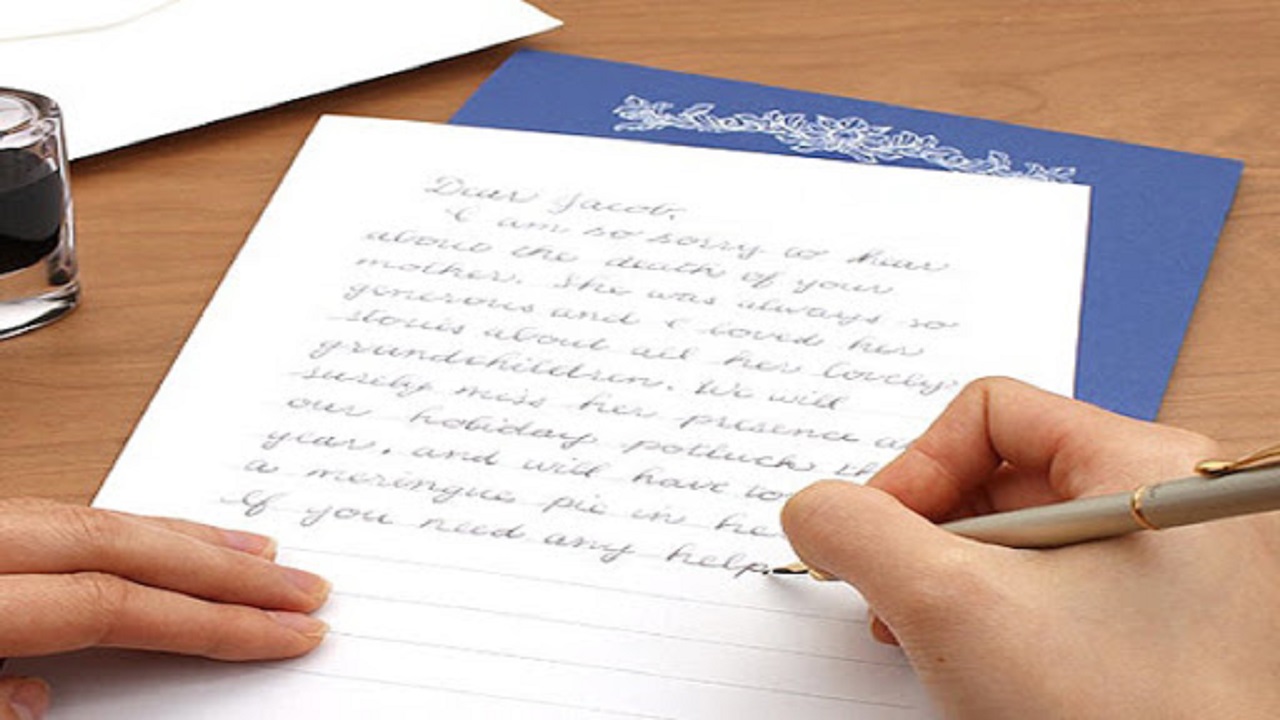 Dear Jacob,
I am so sorry to hear
about the death of your
mother. She was always so
generous and I loved her
stories about all her lovely
grandchildren. We will
surely miss her presence
our holiday potluck
year, and will have to
a meringue pie in
If you need any help